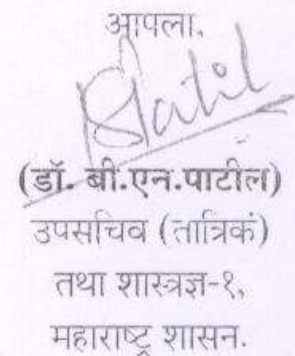 आपला,
Patil
(डॉ. बी.एन.पाटील)
उपसचिव (तात्रिकं)
तथा शास्त्रज्ञ-१,
महाराष्ट्र शासन.